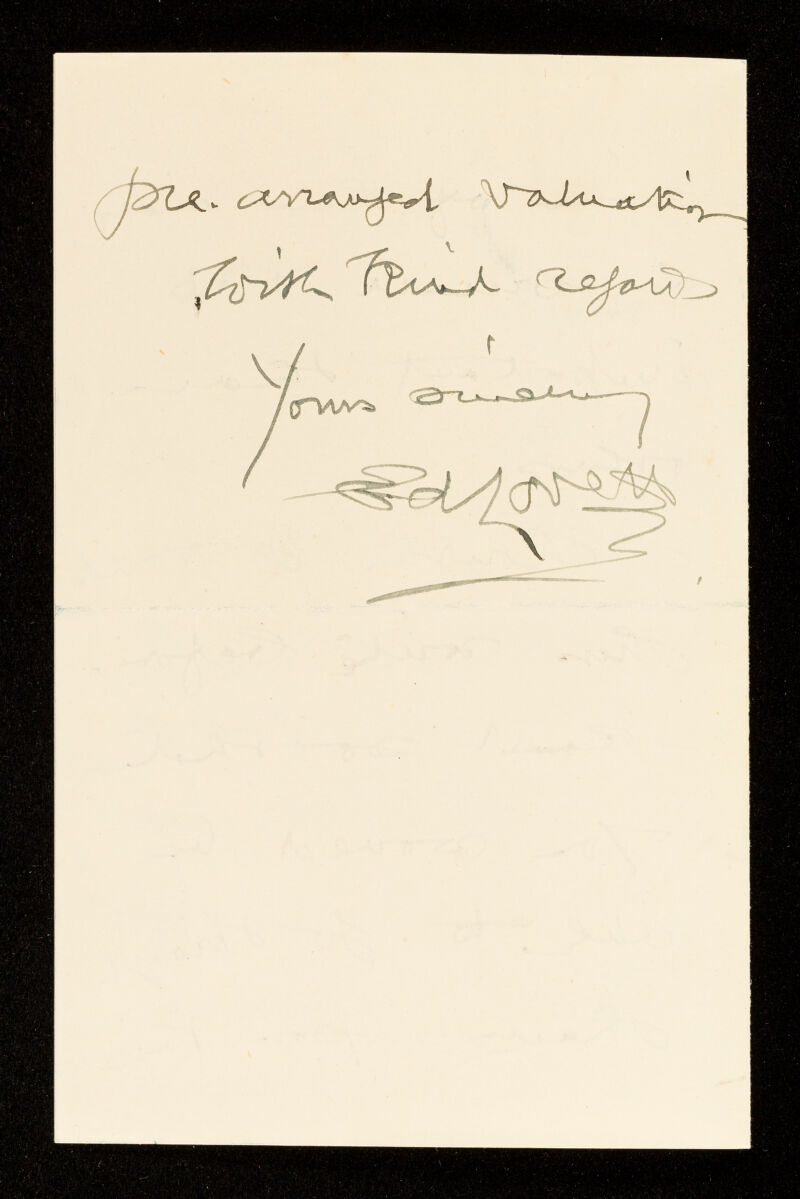 pre-arranged valuation
With Kind regards
Yours sincerely
Ed Lovett